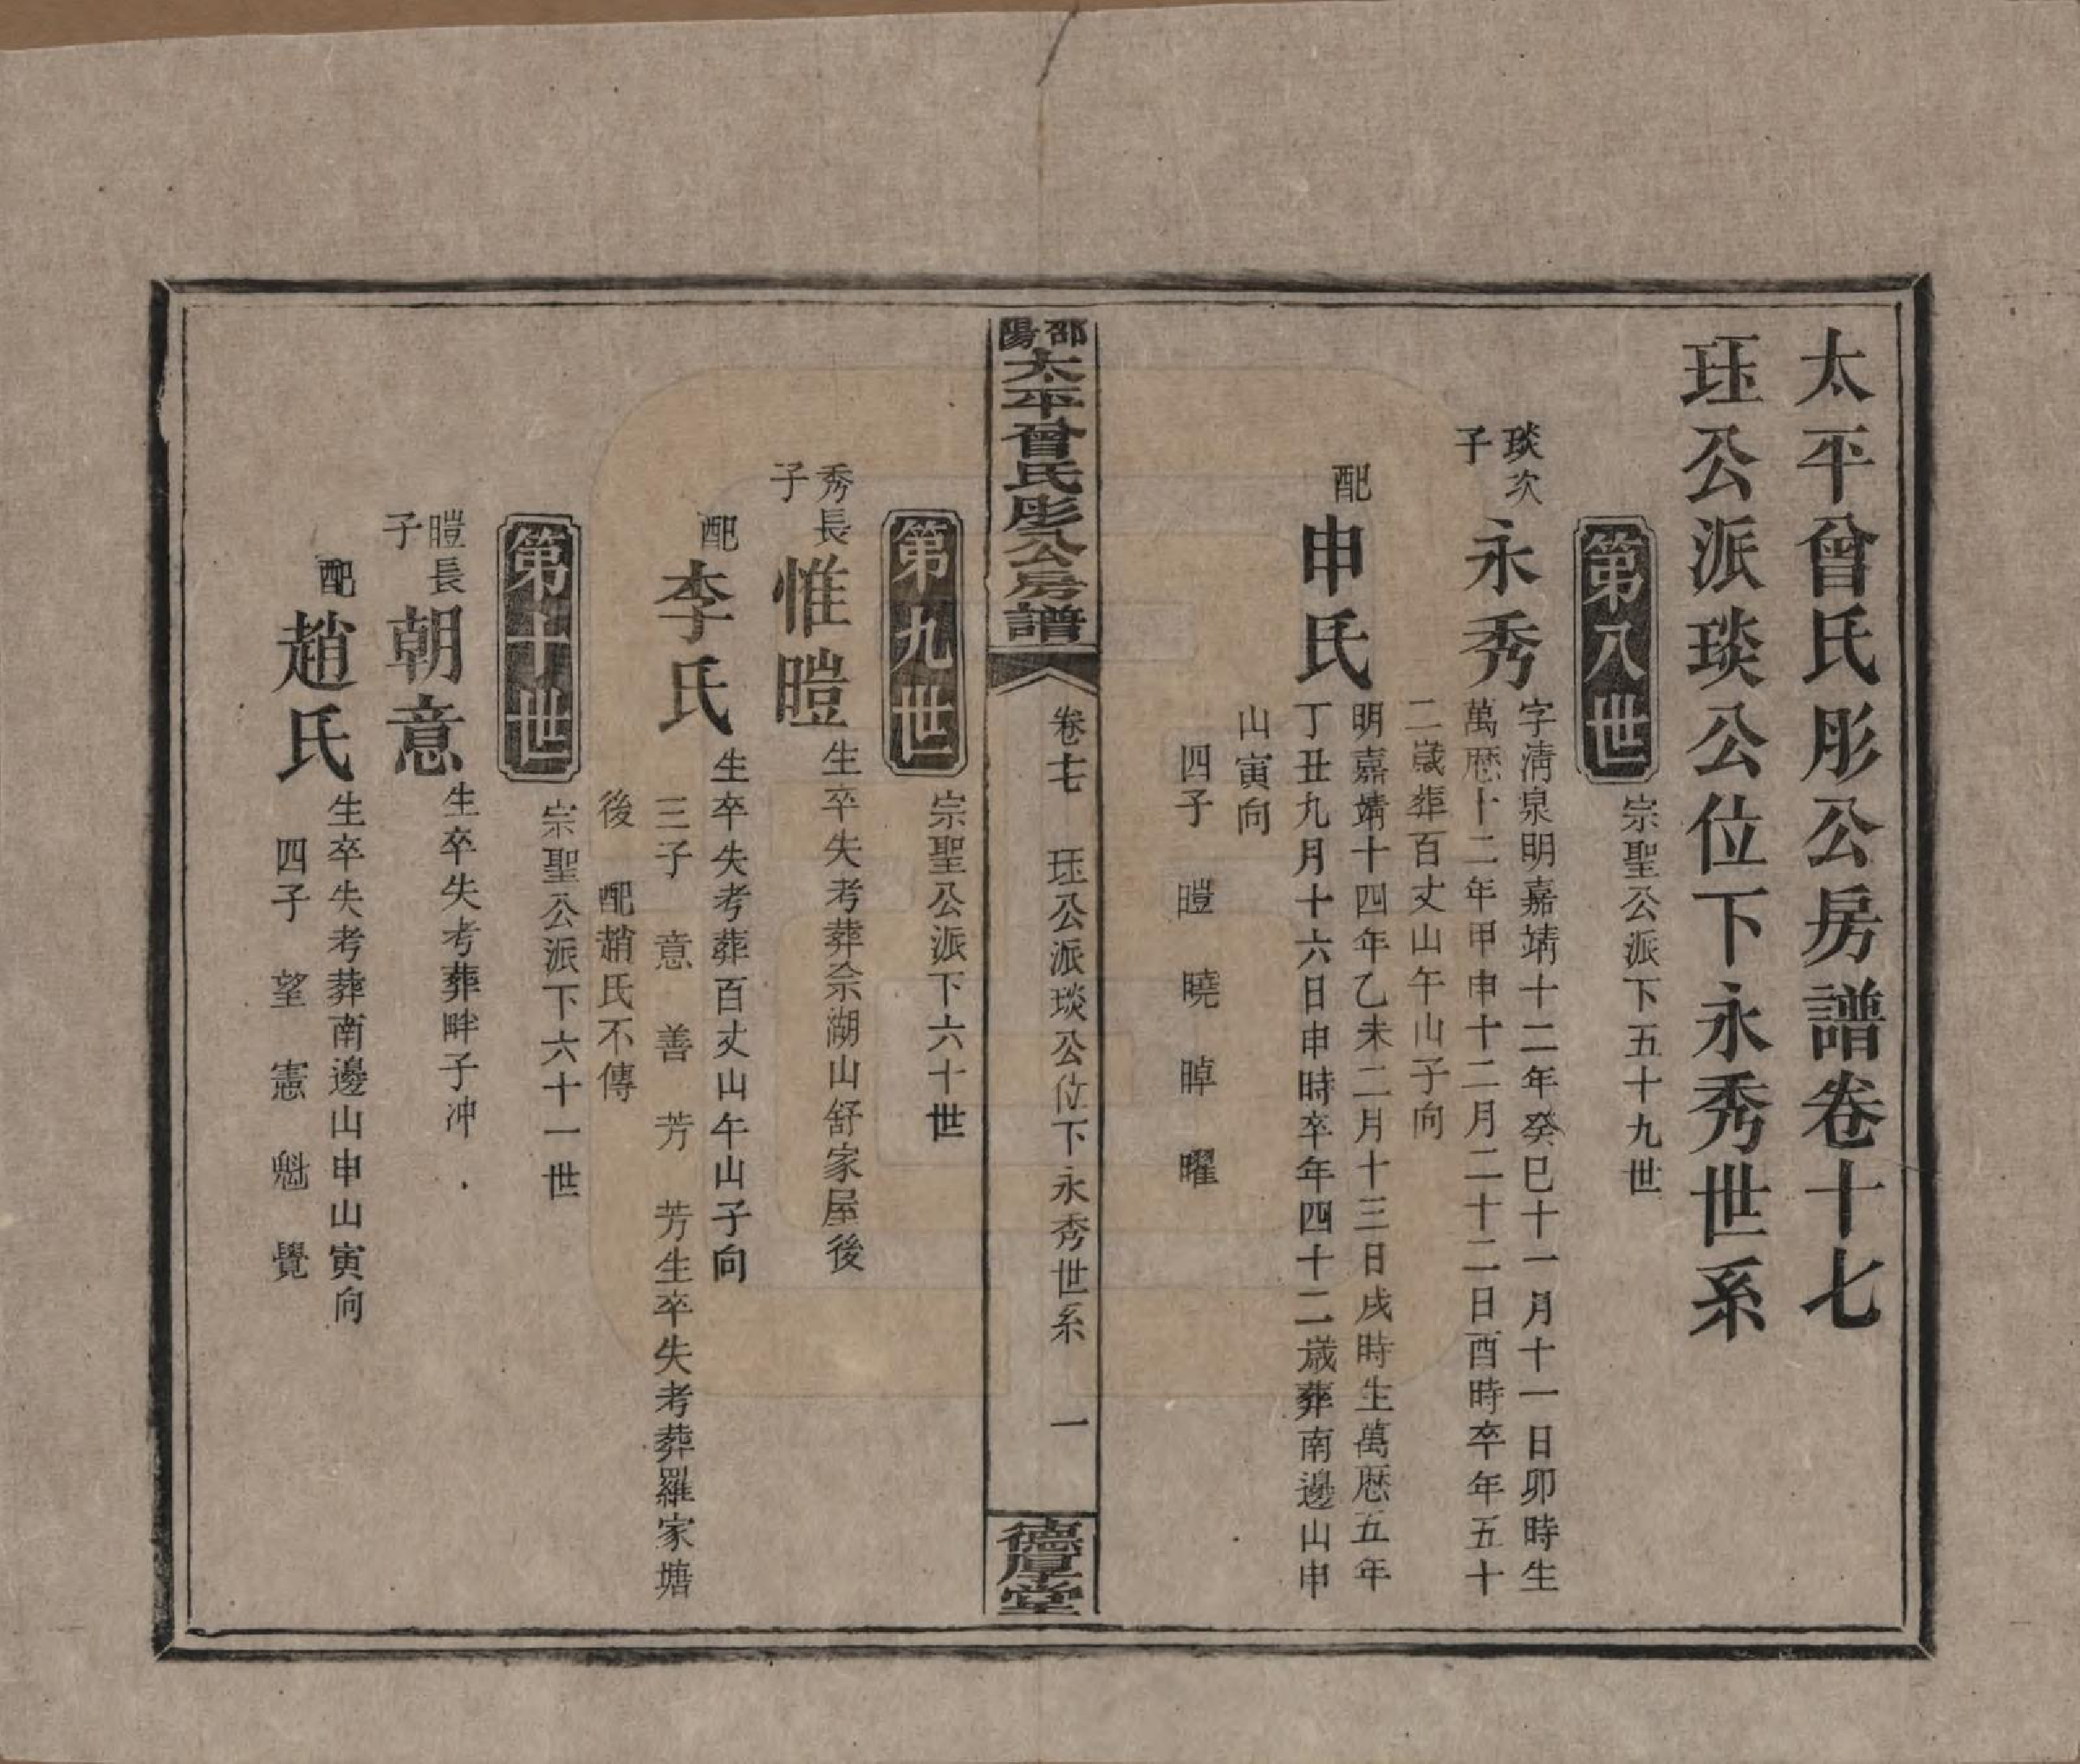 太平曾氏彤公房譜卷十七
珏公派琰公位下永秀世系
第八世
宗聖公派下五十九世
琰次子
永秀
字清泉明嘉靖十二年癸巳十一月十一日卯時生
萬歷十二年甲申十二月二十二日酉時卒年五十
二歲葬百丈山午山子向
配
申氏
明嘉靖十四年乙未二月十三日戌時生萬歷五年
丁丑九月十六日申時卒年四十二歲葬南邊山申
山寅向
四子 暟 曉 晫 曜
邵陽太平曾氏彤公房譜
卷十七 珏公派琰公位下永秀世系 一
德厚堂
第九世
宗聖公派下六十世
秀長子
惟暟
生卒失考葬佘湖山舒家屋後
配
李氏
生卒失考葬百丈山午山子向
三子 意 善 芳 芳生卒失考葬羅家塘
後 配趙氏不傳
第十世
宗聖公派下六十一世
暟長子
朝意
生卒失考葬畔子冲
配
趙氏
生卒失考葬南邊山申山寅向
四子 望 憲 魁 覺